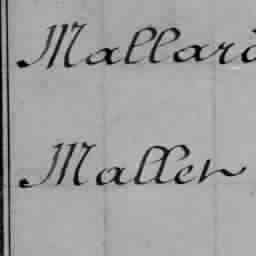 Mallard
Mallen